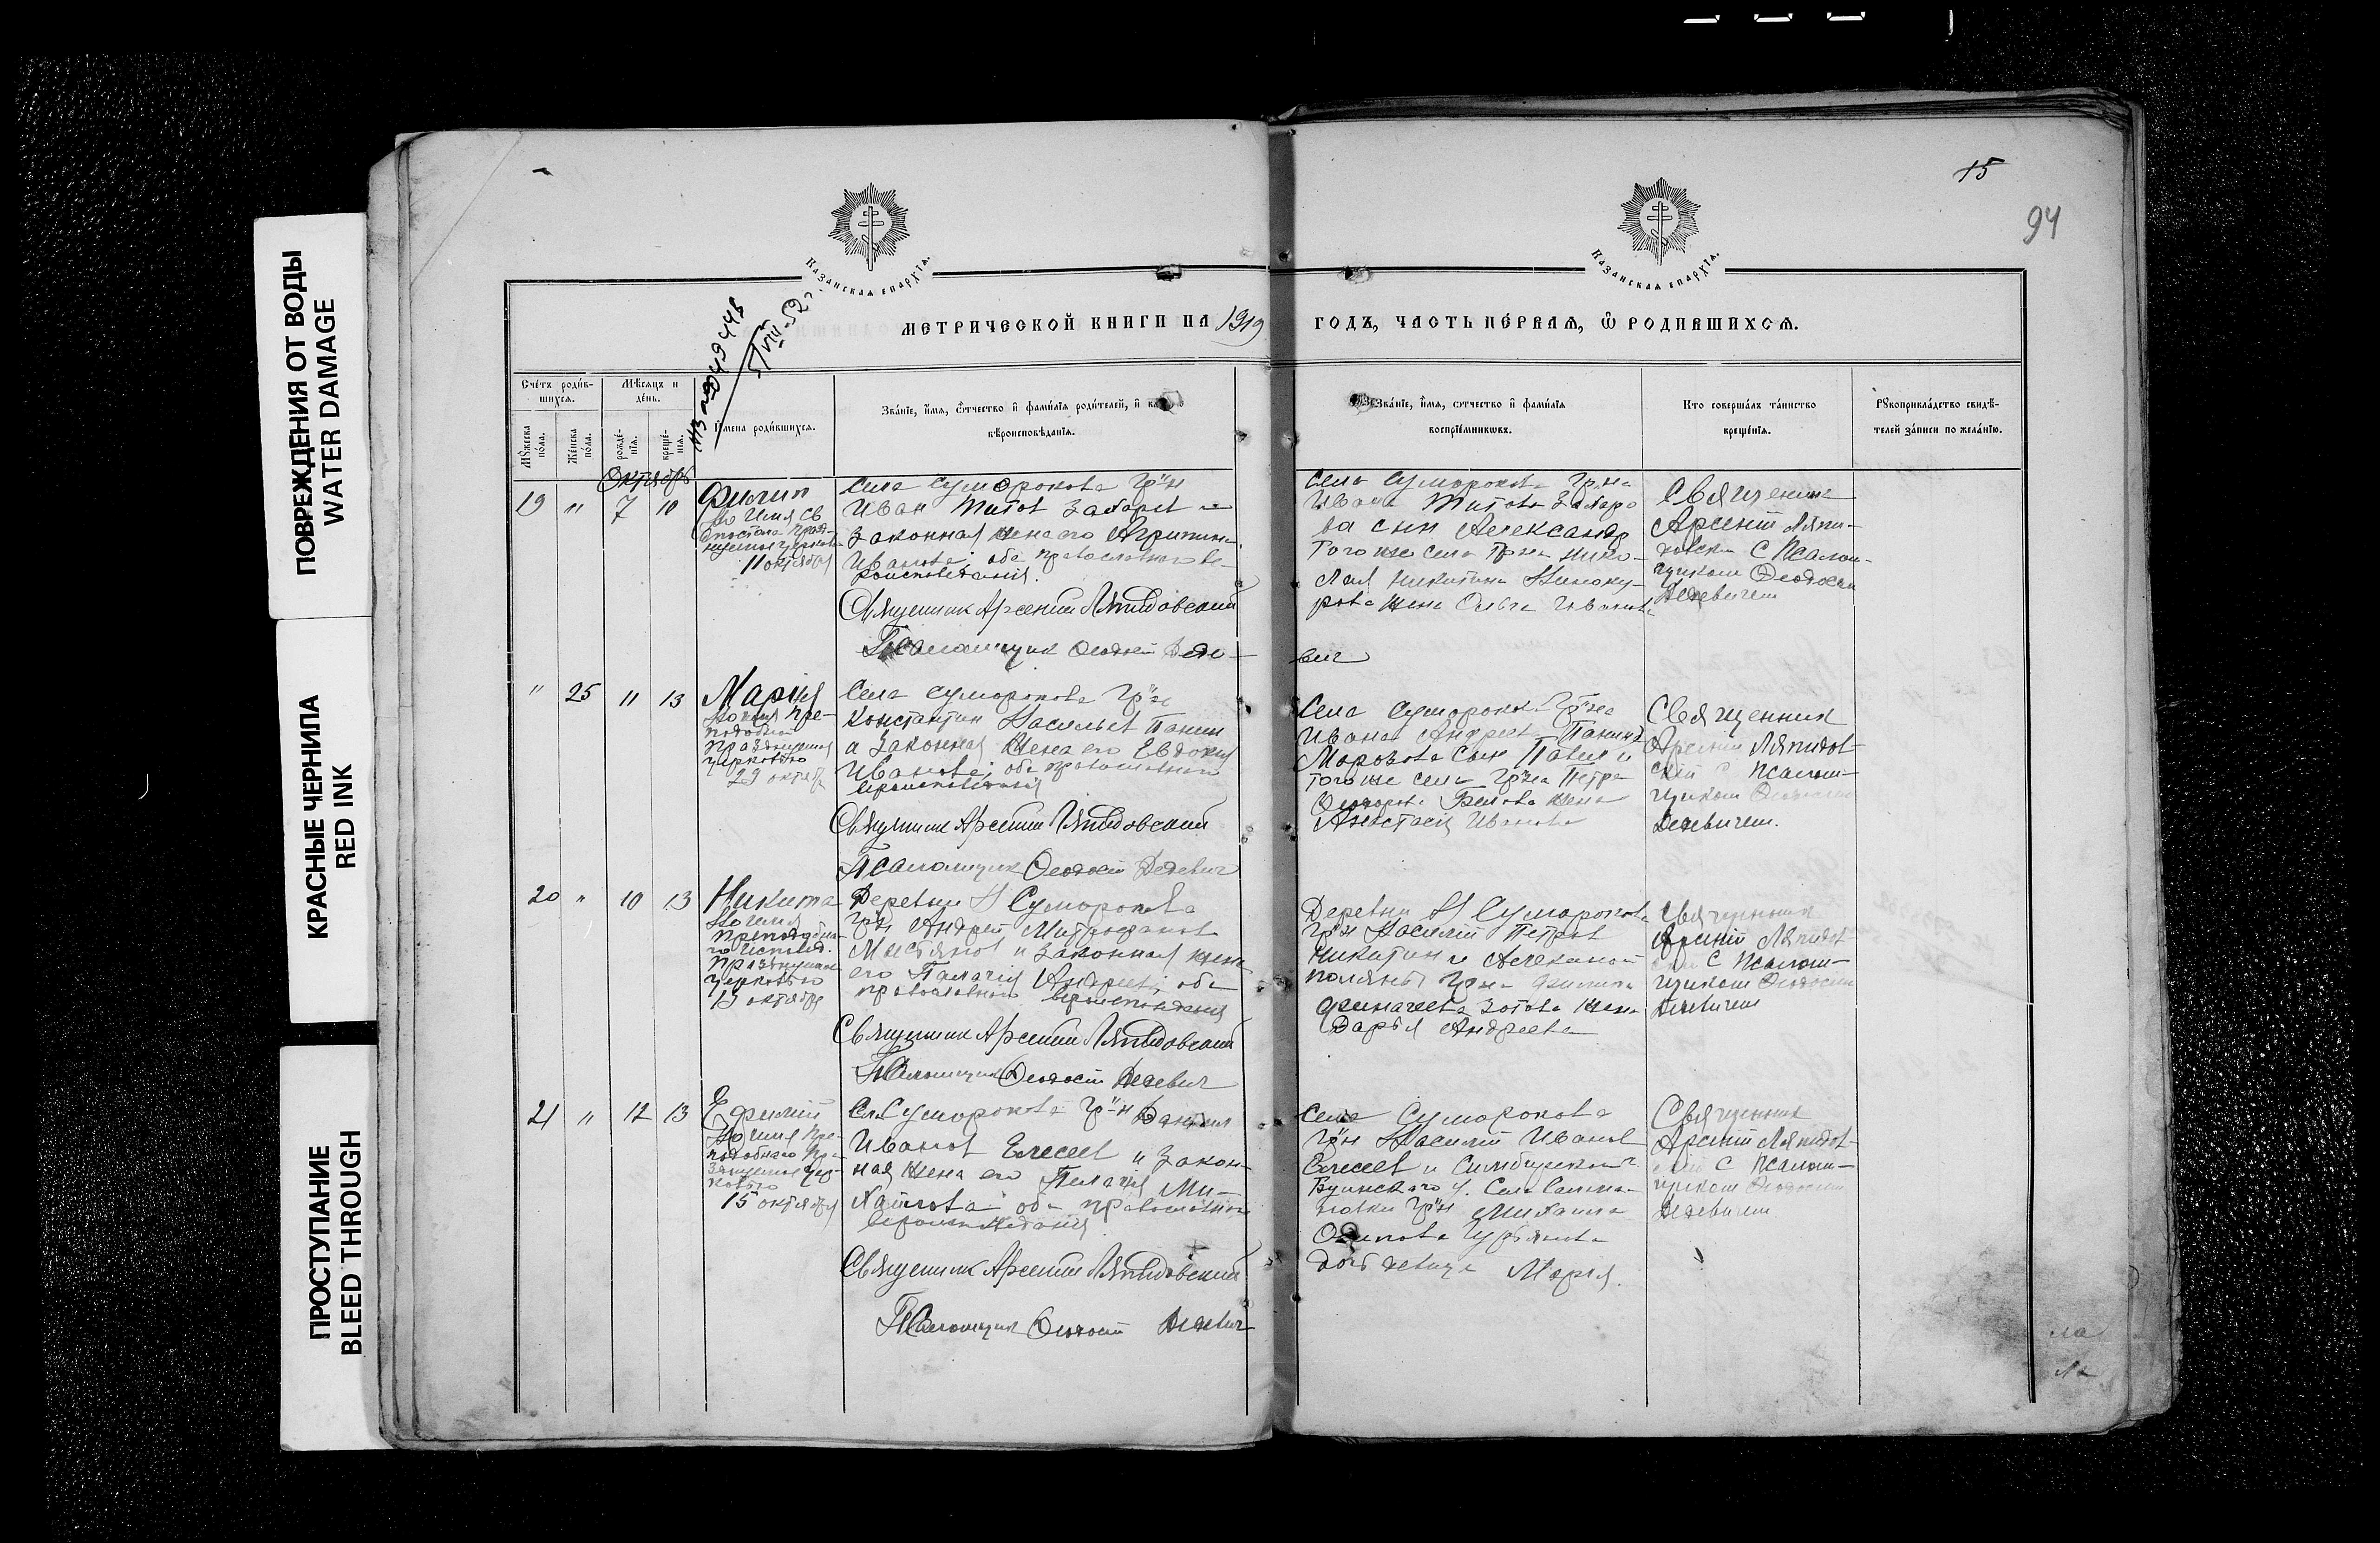 ПОВРЕЖДЕНИЯ ОТ ВОДЫ
WATER DAMAGE
КРАСНЫЕ ЧЕРНИЛА
RED INK
ПРОСТУПАНИЕ
BLEED THROUGH
15
94
КАЗАНСКАЯ ЕПАРХІЯ.
КАЗАНСКАЯ ЕПАРХІЯ.
МЕТРИЧЕСКОЙ КНИГИ НА 1919
ГОДЪ, ЧАСТЬ ПЕРВАЯ, Ѡ РОДИВШИХСЯ.
Счетъ родив-
шихся.
Мѣсяцъ и
день.
Мужеска
пола.
Женска
пола.
рожде-
нія.
креще-
нія.
Имена родившихся.
Званіе, имя, ѿчество и фамилія родителей, и
вѣроисповѣданія.
Званіе, имя, ѿчество и фамилія
воспріемниковъ.
Кто совершалъ таинство
крещенія.
Рукоприкладство свидѣ-
телей записи по желанію.
Октябрь
19 " 7 10
Филип
во Имя Св
Апостола Празд-
нуемая церковью
11 октября
Села Сумарокова Гр-н
Иван Титов Захаров и
Законная жена его Агрипина
Иванова; оба православного ве-
роисповедания.
Священник Арсений Ляпидовский
Псаломщик Феодосий Деде-
вич
Села Сумарокова Гр-на
Ивана Титова Захаро
ва сын Александр
Того же села Гр-на Нико-
лая Никитина Виноку-
рова жена Ольга Иванова
Священник
Арсений Ляпи-
довский с Псалом-
щиком Феодосием
Дедевичем
" 25 11 13
Мария
Во имя Пре-
подобной
празднуемая
церковью
29 октября
Села Сумарокова Гр-н
Константин Васильев Панин
и Законная жена его Евдокия
Иванова; оба православного
вероисповедания
Священник Арсений Ляпидовский
Псаломщик Феодосий Дедевич
Села Сумарокова Гр-на
Ивана Андреева Панина
Сын Павел и
того же села Гр-на Петра
Феодорова Белова жена
Анастасия Иванова
Священник
Арсений Ляпидов-
ский с Псалом-
щиком Феодосием
Дедевичем.
20 " 10 13
Никита
Во имя
преподобна-
го Исповед.
празднуемая
церковью
13 октября
Деревни Н Сумарокова
Гр-н Андрей Митрофанов
и законная жена
его Палагия Андреева; оба
православного вероисповедания
Священник Арсений Ляпидовский
Псаломщик Феодосий Дедевич
Деревни Н Сумарокова
Гр-н Василий Петров
Никитин и
поляны Гр-на Филипа
Зотова жена
Дарья Андреева
Священник
Арсений Ляпидов-
ский с Псалом-
щиком Феодосием
Дедевичем
21 " 12 13
Ефимий
Во имя Пре-
подобнаго Пра-
зднуемая Цер-
ковью
15 октября
Сел. Сумарокова Гр-н Даниил
Иванов Елисеев и Закон-
ная жена его Пелагия Ми-
хайлова оба православного
вероисповедания
Священник Арсений Ляпидовский
Псаломщик Феодосий Дедевич
Села Сумарокова
Гр-н Василий Иванов
Елисеев и Симбирской г
Буинскаго у. Села
Гр-н Михаила
Осипова
дочь девица Мария.
Священник
Арсений Ляпидов-
ский с Псалом-
щиком Феодосием
Дедевичем